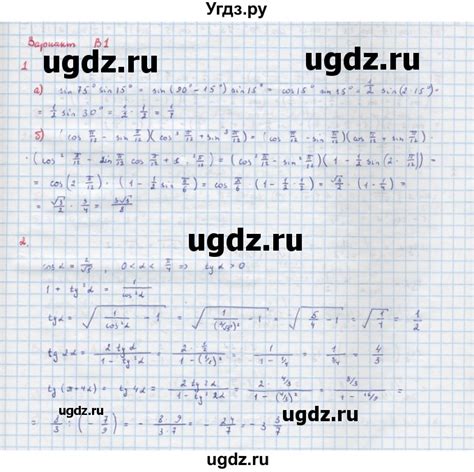 Угдз.ру
Вариант В1
ugdz.ru ugdz.ru
1
а) sin 75° sin 15° = sin (90° - 15°) sin 15° = cos 15° sin 15° = 1/2 sin (2·15°) =
= 1/2 sin 30° = 1/2 · 1/2 = 1/4
б) (cos π/12 - sin π/12)(cos³ π/12 + sin³ π/12) = (cos π/12 - sin π/12)(cos π/12 + sin π/12) ·
= cos (2 π/12) · (1 - 1/2 sin π/6) = cos π/6 (1 - 1/2 · 1/2) = √3/2 · (1 - 1/4) =
= √3/2 · 3/4 = 3√3/8
ugdz.ru
2.
cos α = 2/√5, 0 < α < π/4 ⇒ tg α > 0
1 + tg² α = 1/cos² α
tg α = √(1/cos² α - 1) = √(1/(2/√5)² - 1) = √(5/4 - 1) = √(1/4) = 1/2
tg 2α = 2 tg α/(1 - tg² α) = (2 · 1/2)/(1 - (1/2)²) = 1/(1 - 1/4) = 1/(3/4) = 4/3
tg (π + 4α) = tg 4α = 2 tg 2α/(1 - tg² 2α) = (2 · 4/3)/(1 - (4/3)²) = (8/3)/(1 - 16/9) =
= 8/3 · (- 9/7) = - 8·9/3·7 = - 24/7 = - 3 3/7
ugdz.ru ugdz.ru